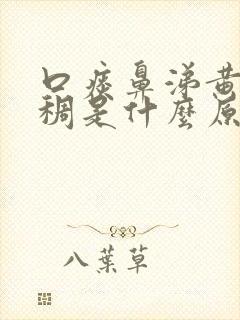 口痰鼻涕黄
稠是什麼原
八葉草